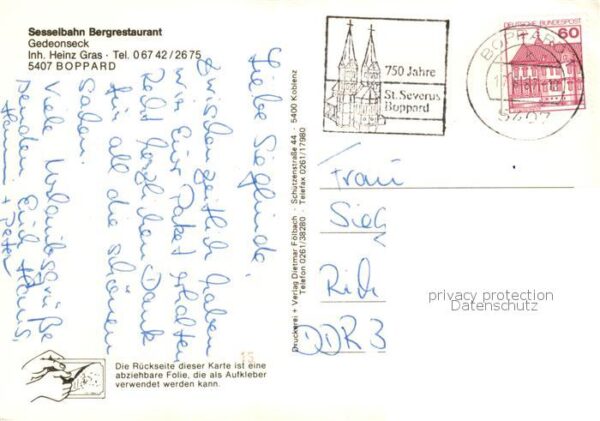 Sesselbahn Bergrestaurant
Gedeonseck
Inh. Heinz Gras · Tel. 0 67 42 / 26 75
5407 BOPPARD
Liebe Sieglinde!
Zwischenzeitlich haben
wir Euer Paket erhalten
Recht herzlichen Dank
für all die schönen
Sachen.
Viele Urlaubsgrüße
senden Euch Hans,
Hanni + Peter
Druckerei + Verlag Dietmar Fölbach · Schützenstraße 44 · 5400 Koblenz
Telefon 0261/38280 · Telefax 0261/17980
750 Jahre
St. Severus
Boppard
DEUTSCHE BUNDESPOST
60
BOPPARD
5407
Frau
Sieg
DDR 3
privacy protection
Datenschutz
15
Die Rückseite dieser Karte ist eine
abziehbare Folie, die als Aufkleber
verwendet werden kann.